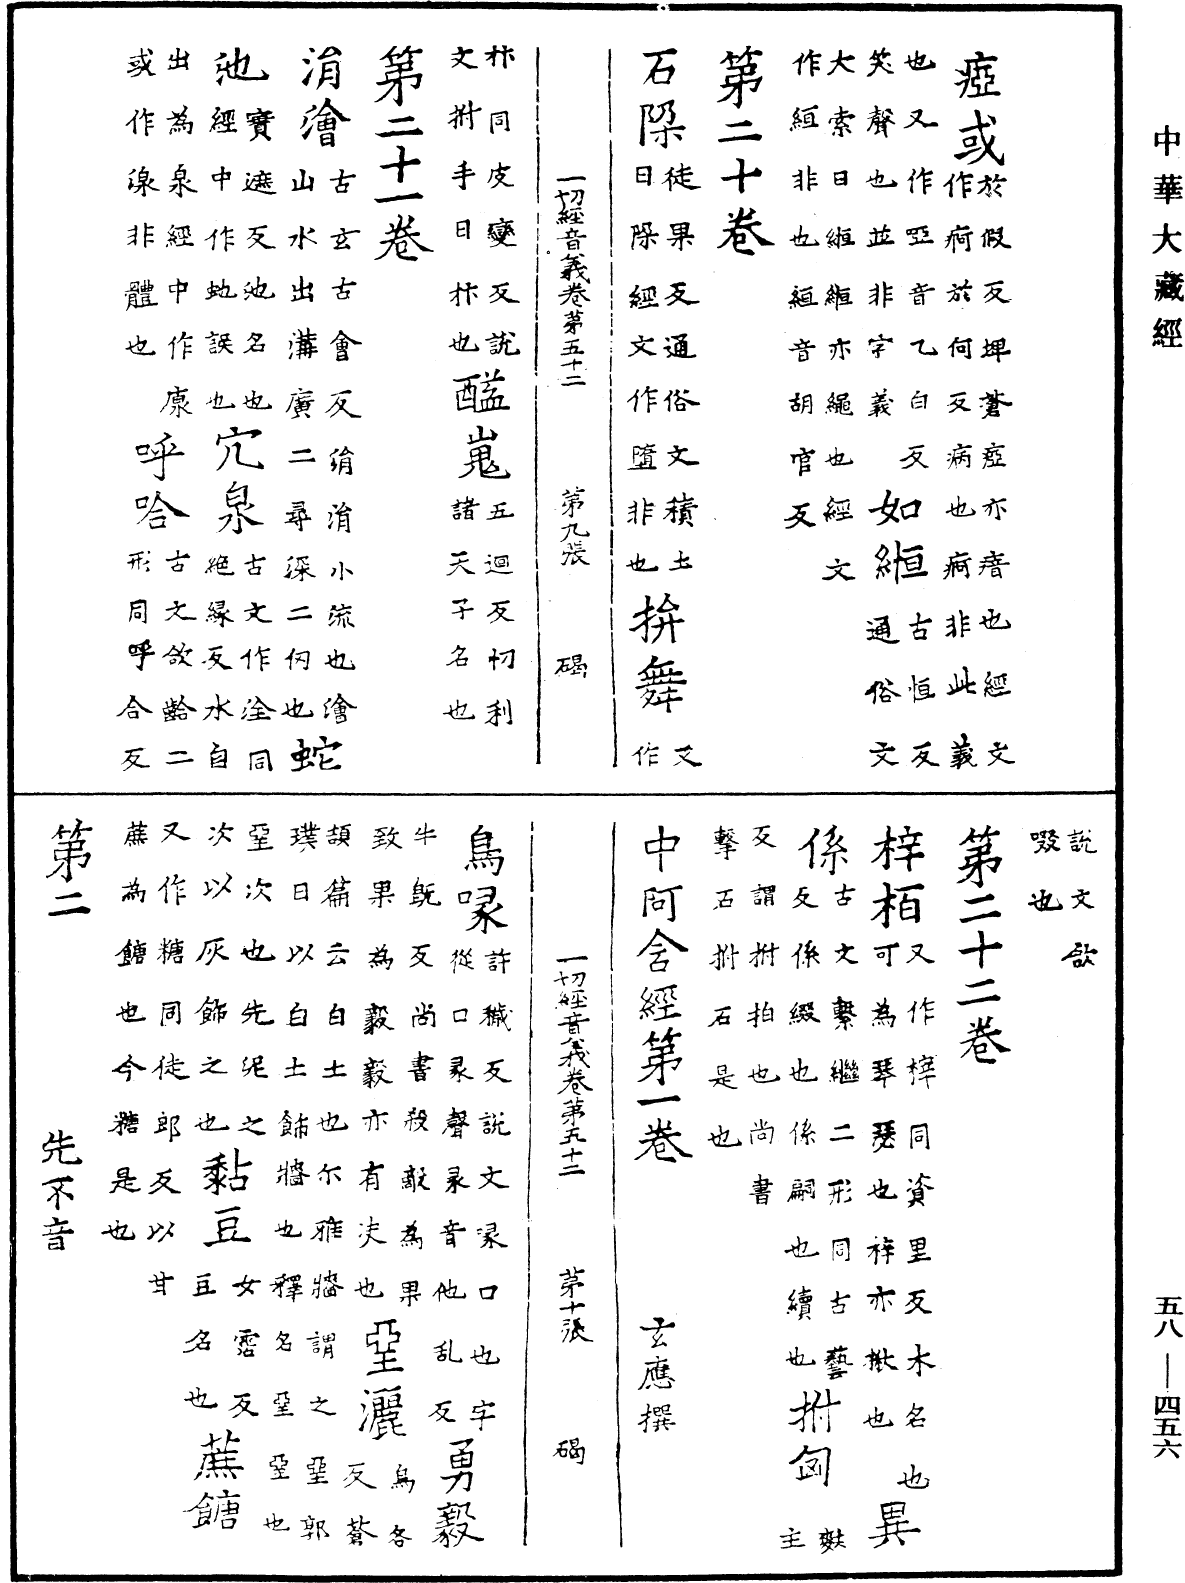 中華大藏經
瘂或於假反埤蒼瘂亦瘖也經文
作疴於何反病也疴非此義
也又作啞音乙白反如絙古恒反
笑聲也並非字義通俗文
大索曰緪緪亦繩也經文
作絙非也絙音胡官反
第二十卷
石𨹃徒果反通俗文積土
曰𨹃經文作墮非也拚舞又作
一切經音義卷第五十二 第九張 碣
抃同皮變反說
文拊手曰抃也䤈嵬五迴反忉利
諸天子名也
第二十一卷
涓澮古玄古會反涓涓小流也澮
山水出溝廣二尋深二仞也蛇
池經中作虵誤也
寶遮反池名也穴泉古文作洤同
絕緣反水自
出為泉經中作㾕
或作湶非體也呼哈古文欱𪘁二
形同呼合反
說文欱
啜也
第二十二卷
梓栢又作榟同資里反木名也
可為琴瑟也梓亦楸也異
係古文繫繼二形同古藝
反係綴也係嗣也續也拊匈麩主
反謂拊拍也尚書
擊石拊石是也
中阿含經第一卷 玄應撰
一切經音義卷第五十二 第十張 碣
鳥喙許穢反說文喙口也字
從口彖聲彖音他乱反勇毅
牛旣反尚書殺敵為果
致果為毅毅亦有决也堊灑烏各
反蒼
頡篇云白土也尒雅牆謂之堊郭
璞曰以白土飾牆也釋名堊堊也
堊次也先泥之
次以灰飾之也黏豆女霑反
豆名也蔗餹
又作糖同徒郎反以甘
蔗為餹也今糖是也
第二 先不音
五八—四五六